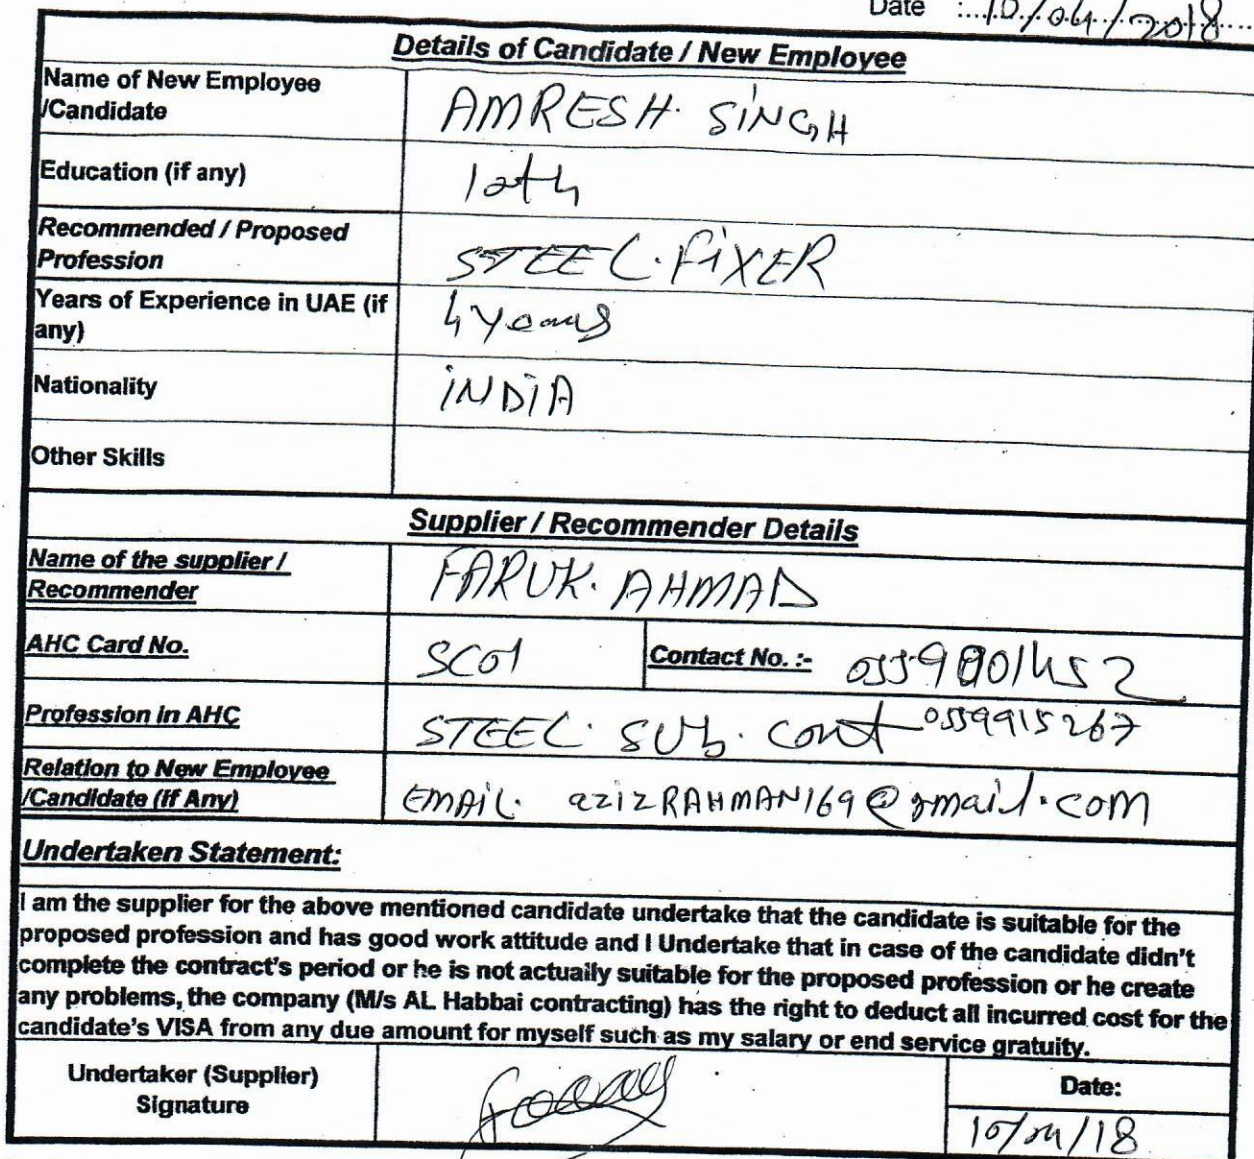 Date :....10/04/2018....
Details of Candidate / New Employee
Name of New Employee /Candidate AMRESH. SINGH
Education (if any) 10th
Recommended / Proposed Profession STEEL. FIXER
Years of Experience in UAE (if any) 4 years
Nationality INDIA
Other Skills
Supplier / Recommender Details
Name of the supplier / Recommender FARUK. AHMAD
AHC Card No. SC01 Contact No. :- 0559001452
Profession in AHC STEEL. SUb. cont 0559915267
Relation to New Employee /Candidate (If Any) EMAIL. azizRAHMAN169@gmail.com
Undertaken Statement:
I am the supplier for the above mentioned candidate undertake that the candidate is suitable for the
proposed profession and has good work attitude and I Undertake that in case of the candidate didn't
complete the contract's period or he is not actually suitable for the proposed profession or he create
any problems, the company (M/s AL Habbai contracting) has the right to deduct all incurred cost for the
candidate's VISA from any due amount for myself such as my salary or end service gratuity.
Undertaker (Supplier) Signature
Date:
10/04/18